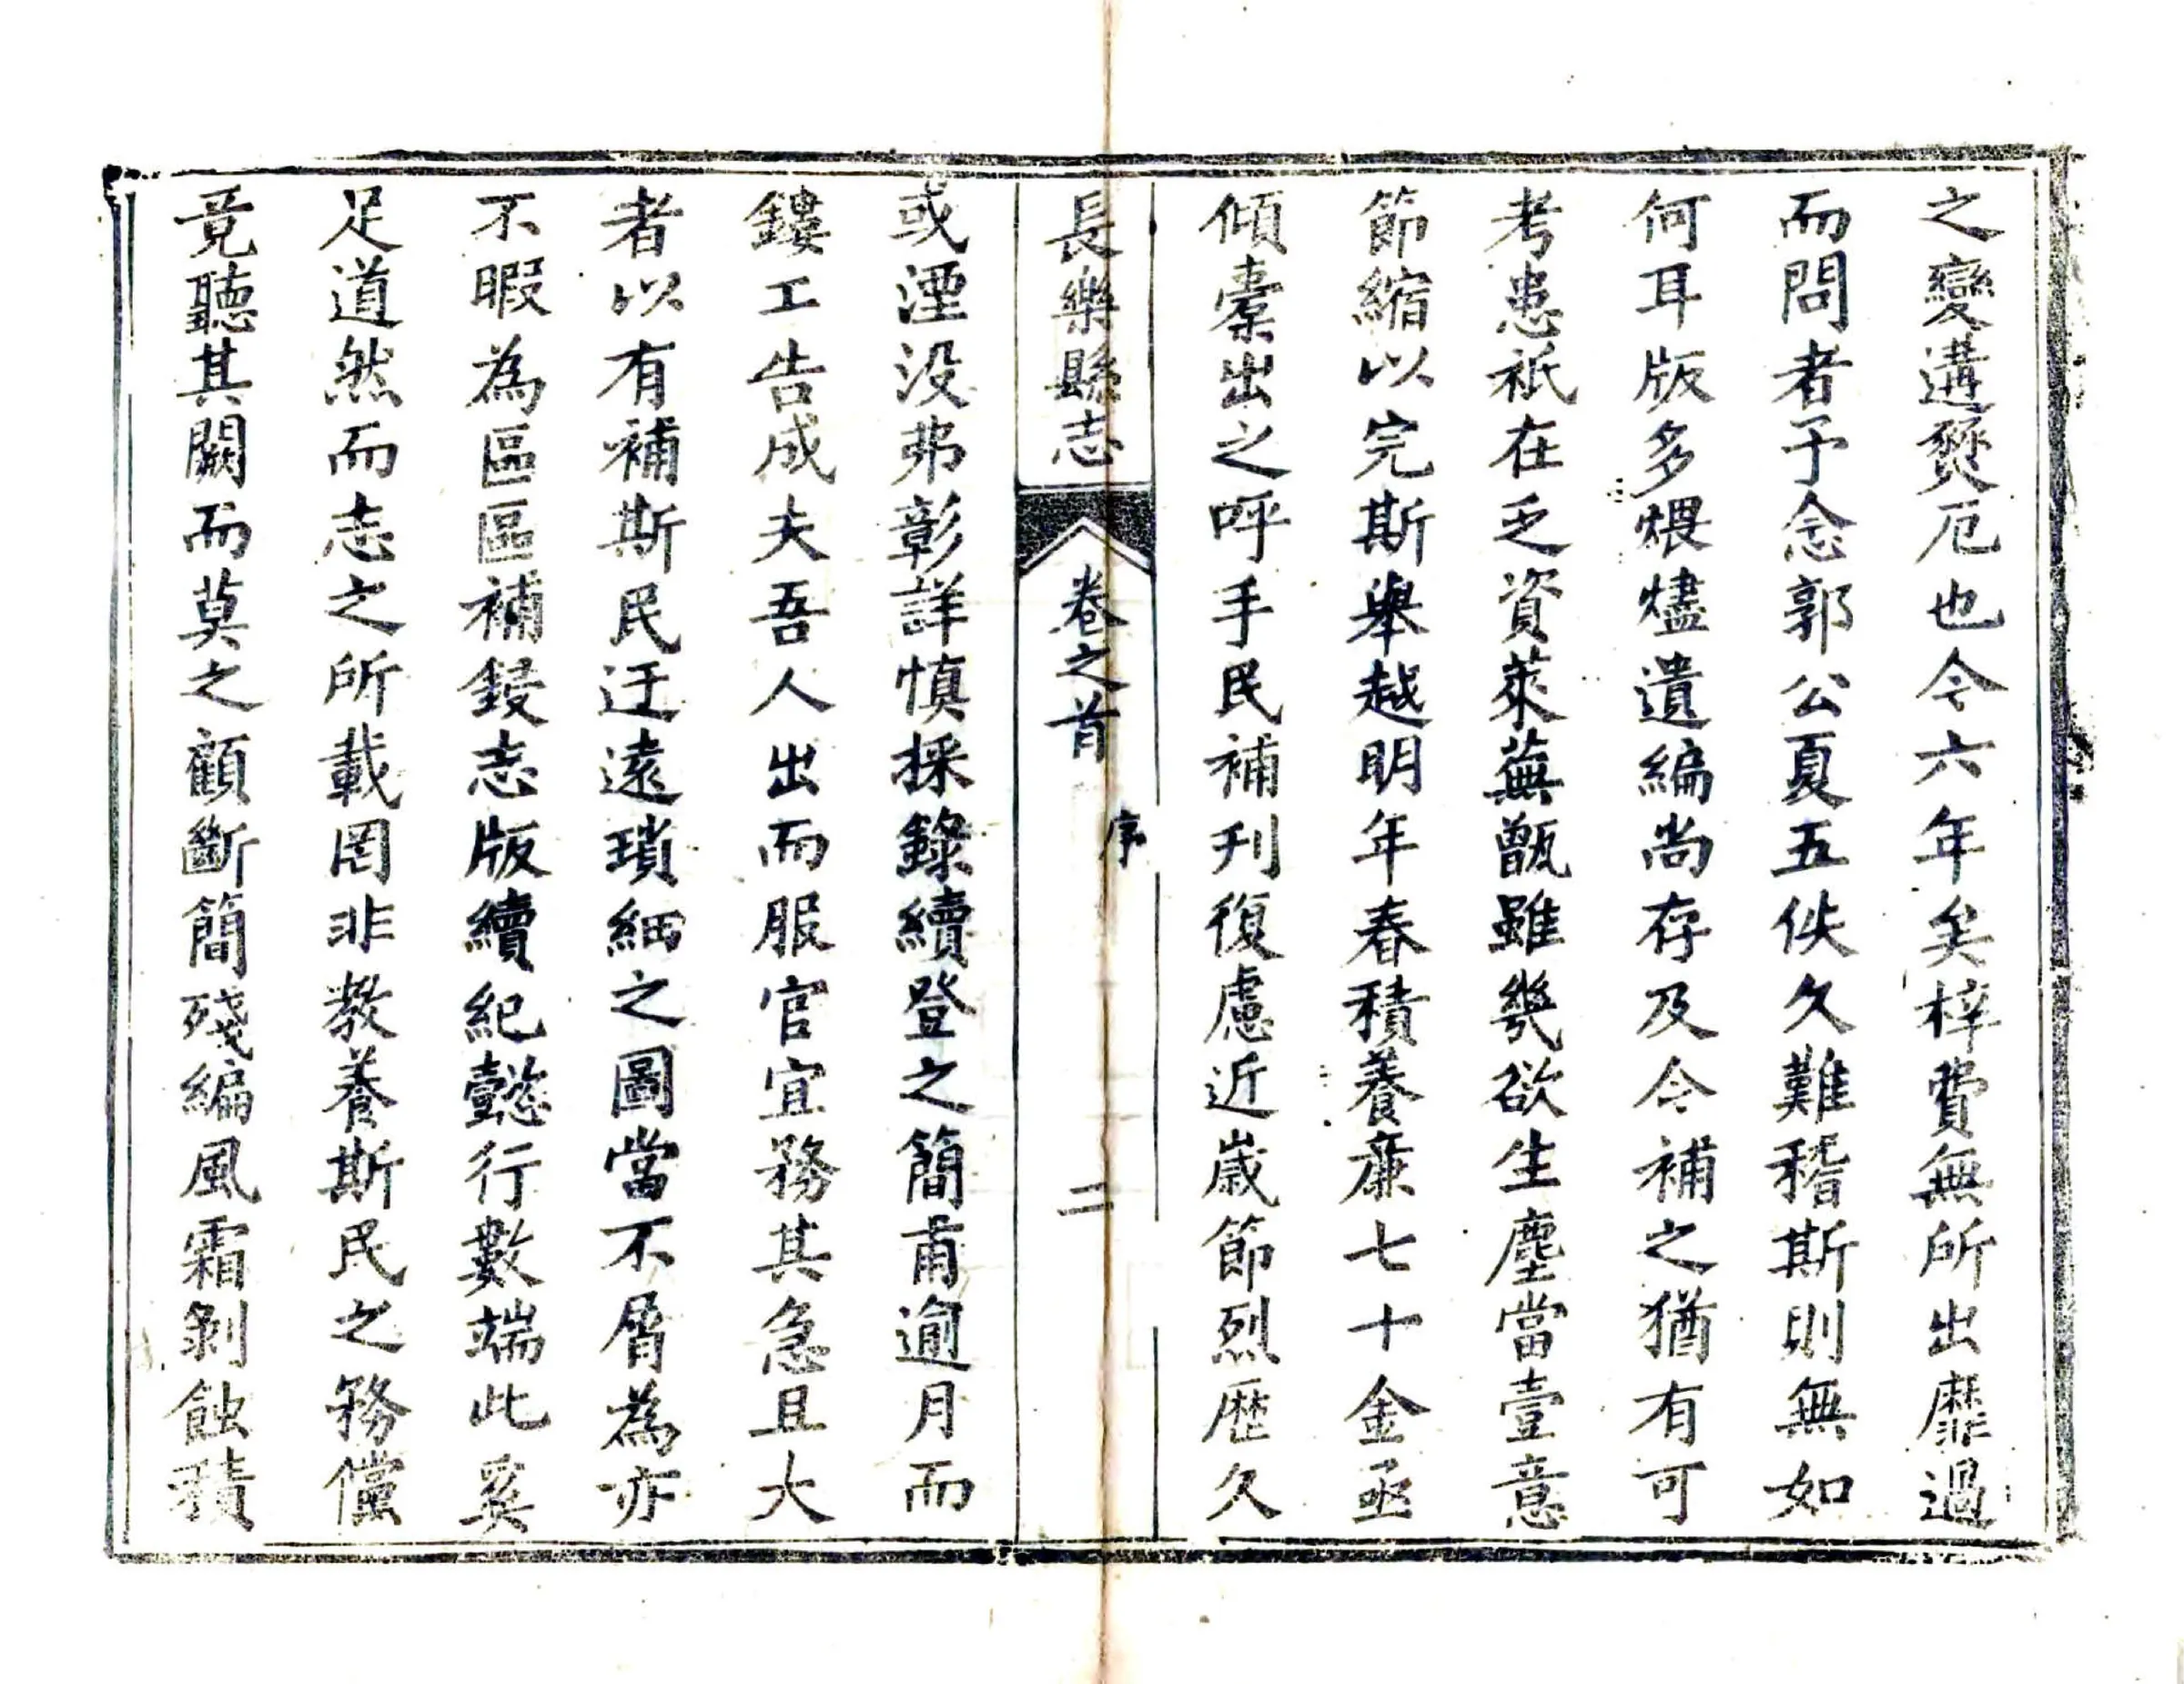 之變遘燹厄也今六年矣梓費無所出靡過
而問者予念郭公夏五佚久難稽斯則無如
何耳版多煨燼遺編尚存及今補之猶有可
考患祇在乏資萊蕪甑雖幾欲生塵當壹意
節縮以完斯舉越明年春積養廉七十金亟
傾橐出之呼手民補刋復慮近嵗節烈歴久
長樂縣志
卷之首
序
二
或湮没弗彰詳慎採錄續登之簡甫逾月而
鏤工告成夫吾人出而服官宜務其急且大
者以有補斯民迂遠瑣細之圖當不屑為亦
不暇為區區補鋟志版續紀懿行數端此奚
足道然而志之所載罔非教養斯民之務儻
竟聽其闕而莫之顧斷簡殘編風霜剝蝕積